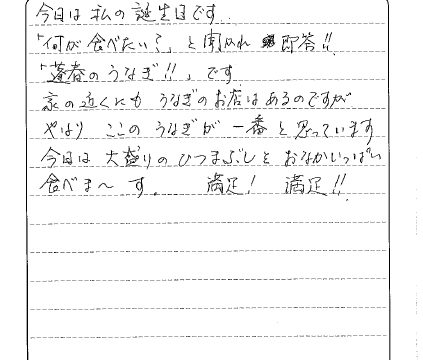 今日は私の誕生日です..
「何が食べたい?」と聞かれ 即答!!
「蓬春のうなぎ!!」です
家の近くにも うなぎのお店はあるのですが
やはり ここの うなぎが 一番と思っています
今日は 大盛りのひつまぶしを おなかいっぱい
食べま〜す。 満足! 満足!!